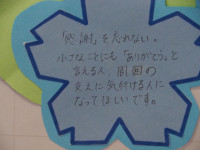 「感謝」を忘れない。
小さなことにも「ありがとう」と
言える人、周囲の
支えに気付ける人に
なってほしいです。